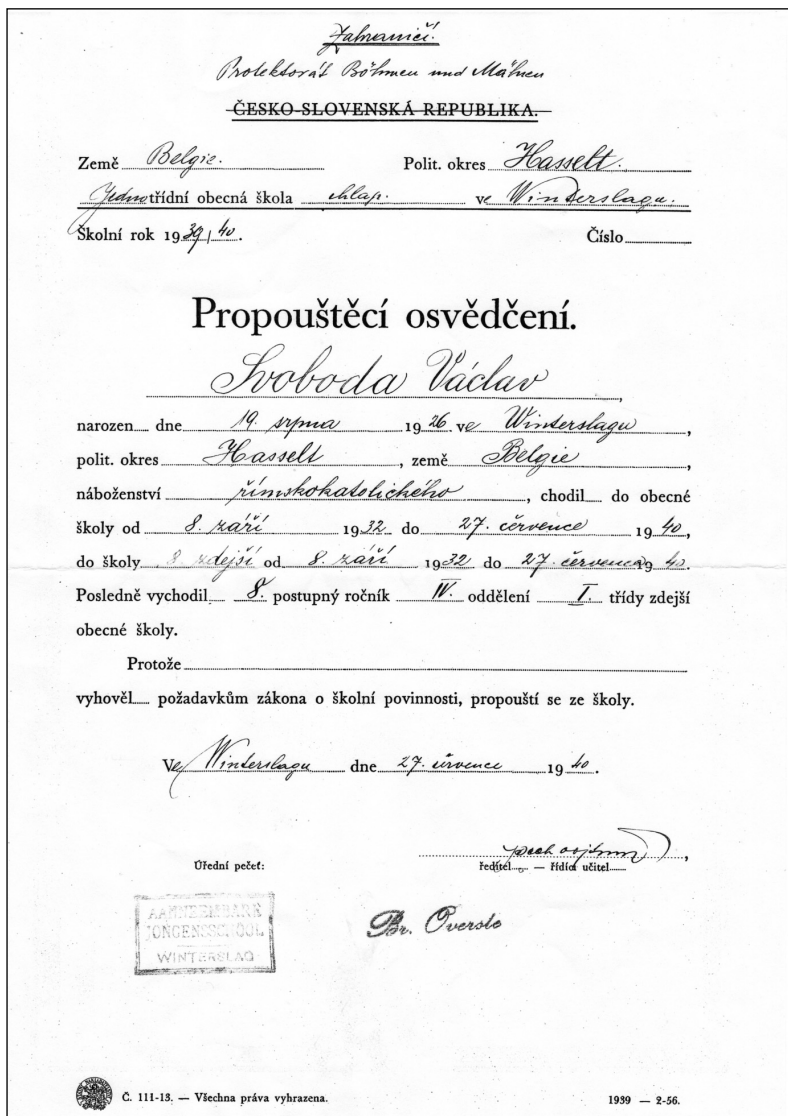 Zahraničí.
Protektorát Böhmen und Mähren
ČESKO-SLOVENSKÁ REPUBLIKA.
Země Belgie. Polit. okres Hasselt.
Jednotřídní obecná škola chlap. ve Winterslagu.
Školní rok 1939/40. Číslo
Propouštěcí osvědčení.
Svoboda Václav,
narozen dne 19. srpna 1926 ve Winterslagu,
polit. okres Hasselt, země Belgie,
náboženství římskokatolického, chodil do obecné
školy od 8. září 1932 do 27. července 1940,
do školy zdejší od 8. září 1932 do 27. července 1940.
Posledně vychodil 8. postupný ročník IV. oddělení I. třídy zdejší
obecné školy.
Protože
vyhověl požadavkům zákona o školní povinnosti, propouští se ze školy.
Ve Winterslagu dne 27. července 1940.
Úřední pečeť:
ředitel — řídící učitel
AANNEEMBARE
JONGENSSCHOOL
WINTERSLAG
Br. Overste
Č. 111-13. — Všechna práva vyhrazena. 1939 — 2-56.